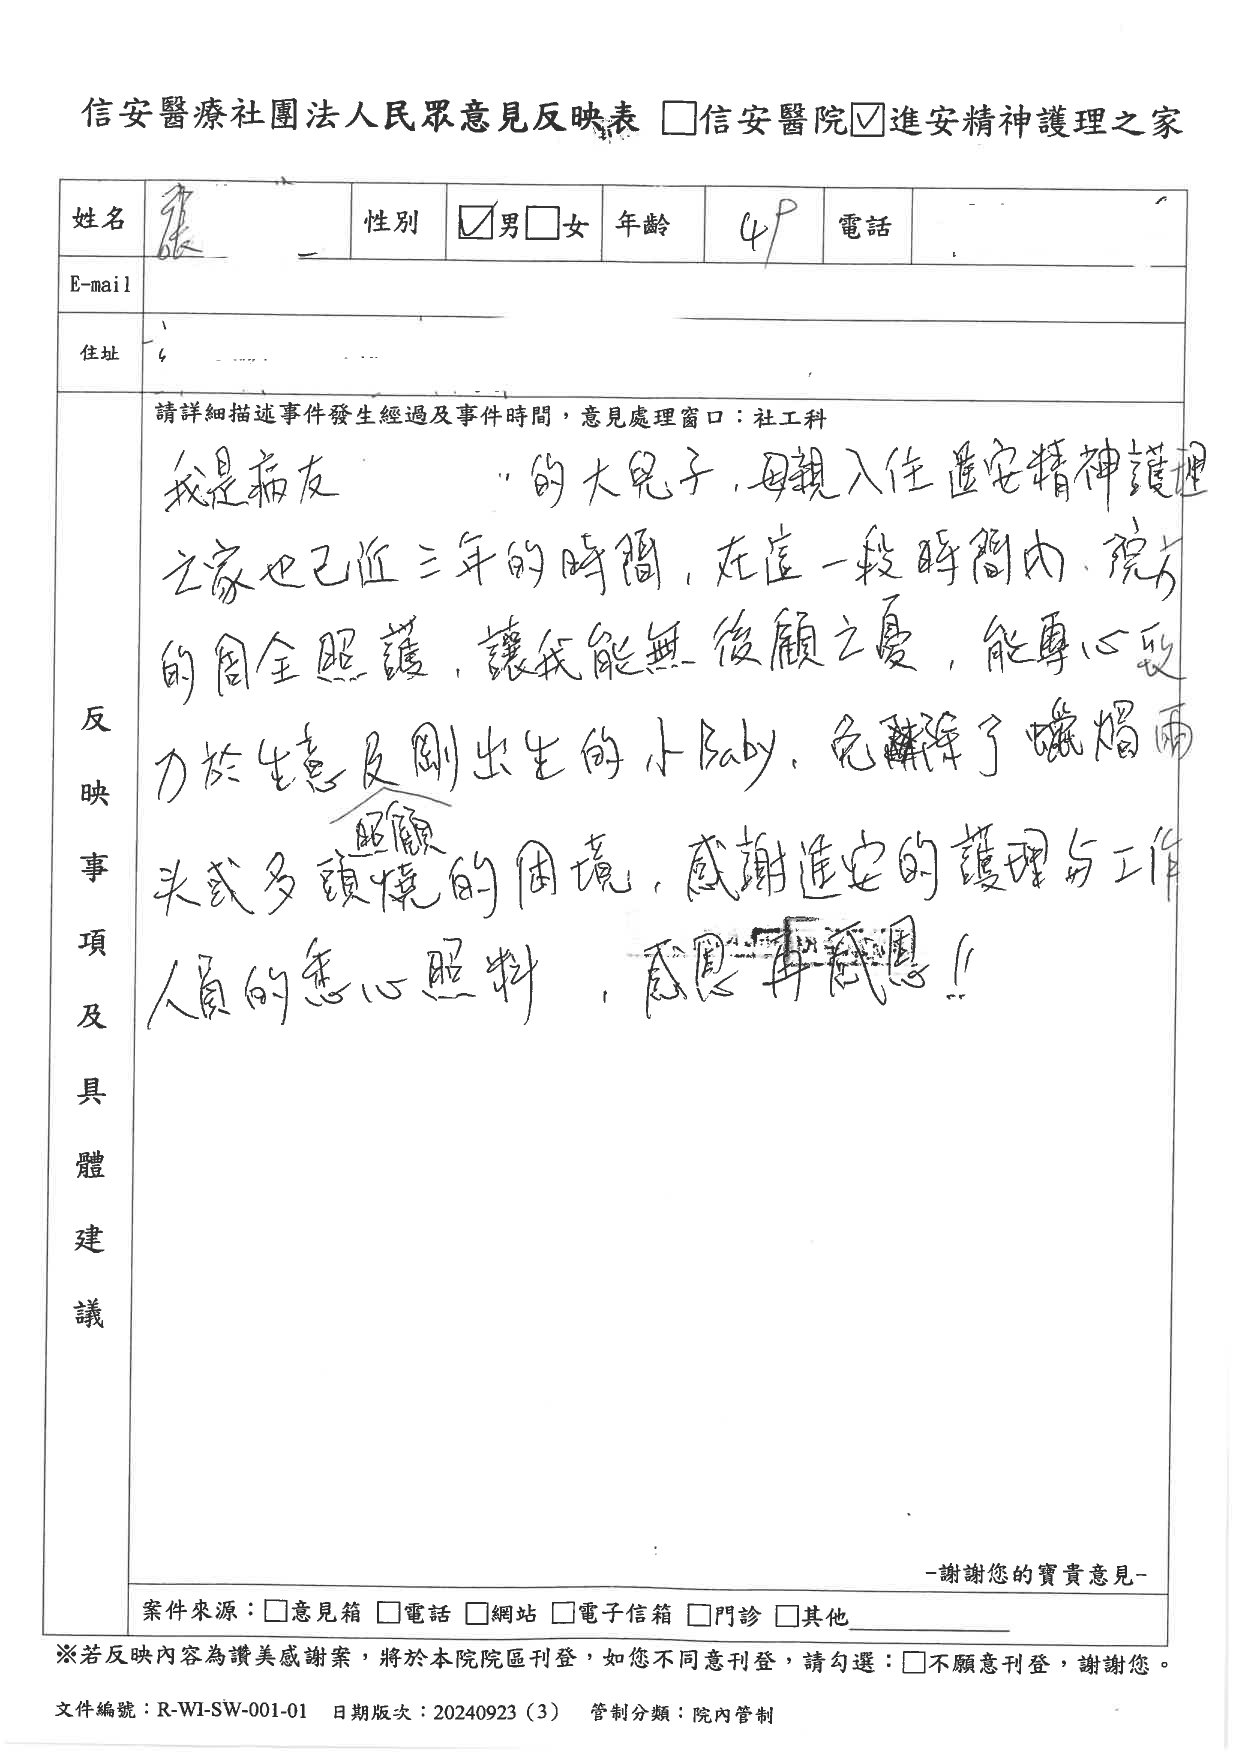 信安醫療社團法人民眾意見反映表 □信安醫院☑進安精神護理之家
姓名 張 性別 ☑男□女 年齡 49 電話
E-mail
住址
請詳細描述事件發生經過及事件時間，意見處理窗口：社工科
反映事項及具體建議
我是病友 的大兒子，母親入住進安精神護理
之家也已近三年的時間，在這一段時間內、院方
的周全照護，讓我能無後顧之憂，能專心致
力於生意及照顧剛出生的小Baby，免除了蠟燭兩
头或多頭燒的困境，感謝進安的護理与工作
人員的悉心照料，感恩再感恩!!
-謝謝您的寶貴意見-
案件來源：□意見箱 □電話 □網站 □電子信箱 □門診 □其他
※若反映內容為讚美感謝案，將於本院院區刊登，如您不同意刊登，請勾選：□不願意刊登，謝謝您。
文件編號：R-WI-SW-001-01 日期版次：20240923（3） 管制分類：院內管制